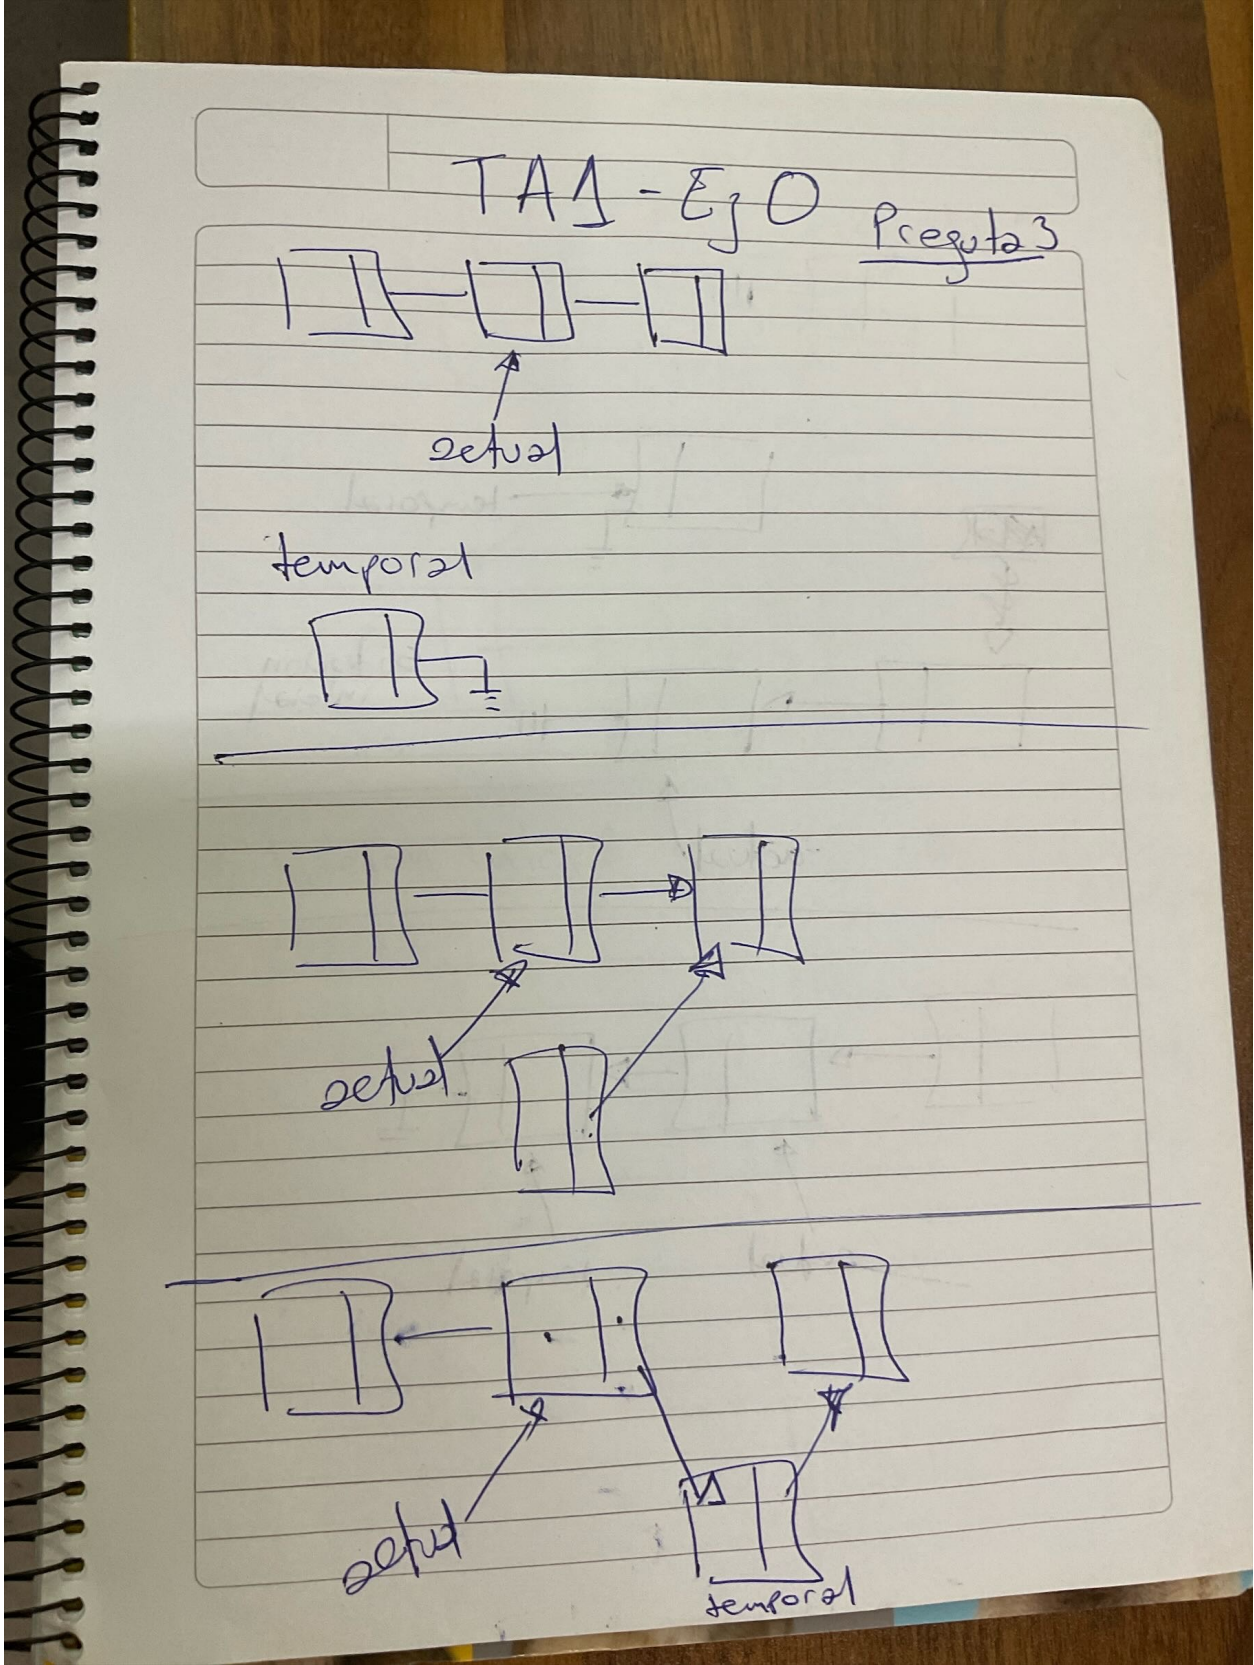 TA1 - Ej 0
Preguta 3
actual
temporal
actual
actual
temporal